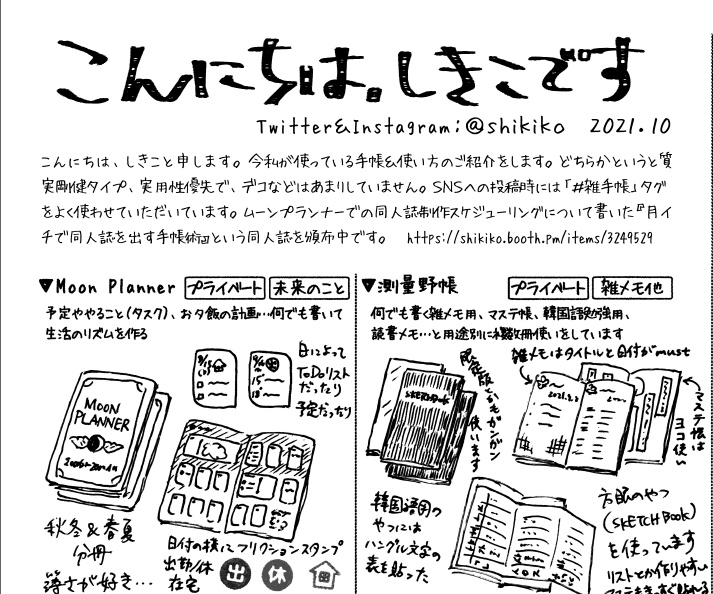 こんにちは。しきこです
Twitter&Instagram:@shikiko 2021.10
こんにちは、しきこと申します。今私が使っている手帳&使い方のご紹介をします。どちらかというと質
実剛健タイプ、実用性優先で、デコなどはあまりしていません。SNSへの投稿時には「#雑手帳」タグ
をよく使わせていただいています。ムーンプランナーでの同人誌制作スケジューリングについて書いた『月イ
チで同人誌を出す手帳術』という同人誌を頒布中です。 https://shikiko.booth.pm/items/3249529
▼Moon Planner プライベート 未来のこと
予定ややること(タスク)、お夕飯の計画…何でも書いて
生活のリズムを作る
日によって
ToDoリスト
だったり
予定だったり
MOON
PLANNER
秋冬&春夏
分冊
薄さが好き…
日付の横にフリクションスタンプ
出勤/休
在宅
出 休
▼測量野帳 プライベート 雑メモ他
何でも書く雑メモ用、マステ帳、韓国語勉強用、
読書メモ…と用途別に複数冊使いをしています
雑メモはタイトルと日付がmust
SKETCHBook
使います
マステ帳は
ヨコ使い
韓国語用の
やつには
ハングル文字の
表を貼った
方眼のやつ
(SKETCH Book)
を使っています
リストとか作りやすい